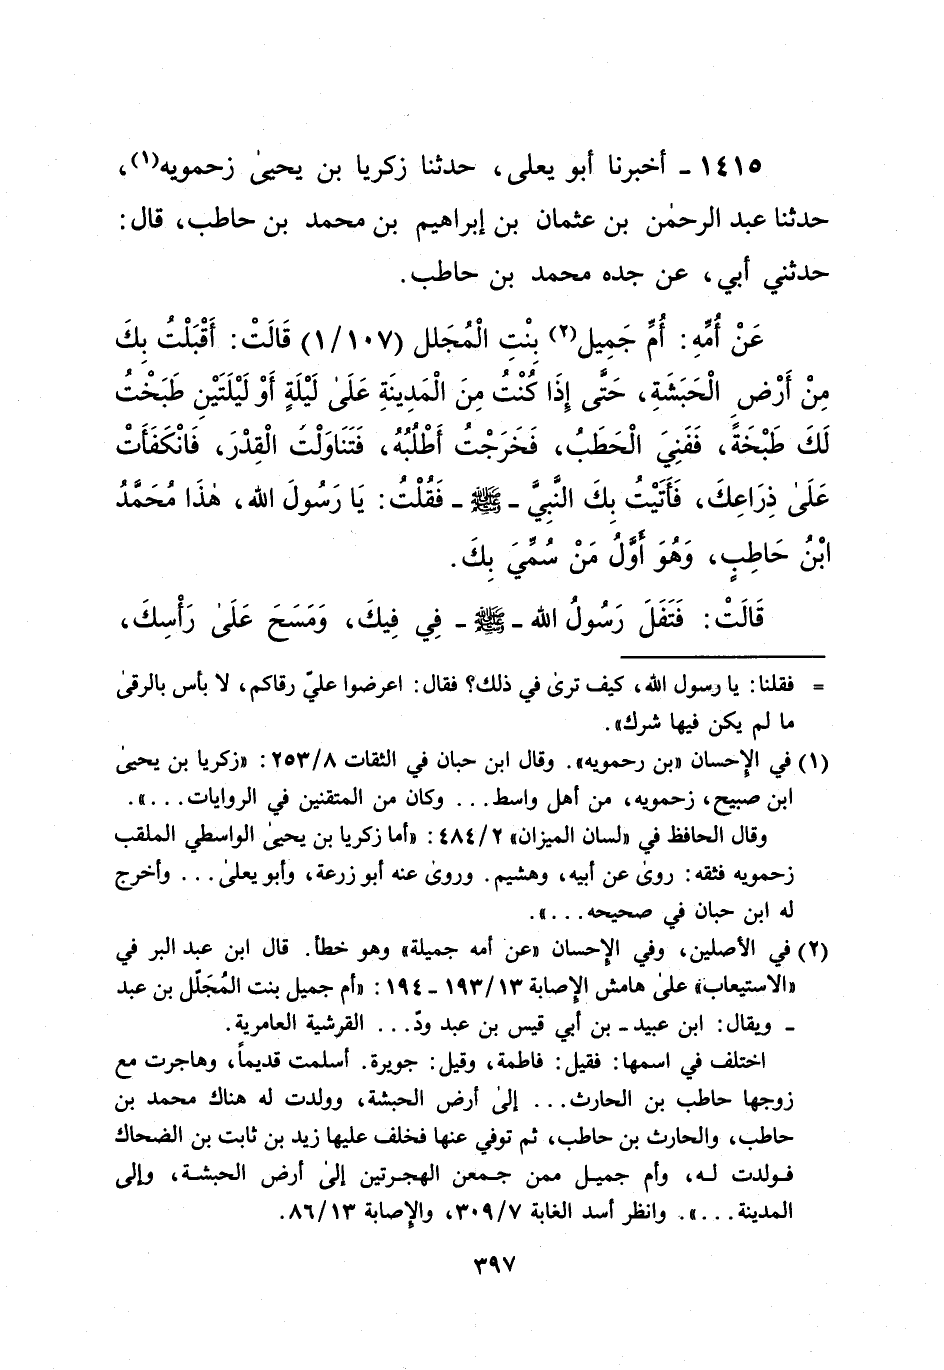 ١٤١٥ ـ أخبرنا أبو يعلى، حدثنا زكريا بن يحيىٰ زحمويه(١)،
حدثنا عبد الرحمٰن بن عثمان بن إبراهيم بن محمد بن حاطب، قال:
حدثني أبي، عن جده محمد بن حاطب.
عَنْ أُمِّهِ: أُمِّ جَمِيلٍ(٢) بِنْتِ الْمُجَلل (١/١٠٧) قَالَتْ: أَقْبَلْتُ بِكَ
مِنْ أَرْضِ الْحَبَشَةِ، حَتَّى إِذَا كُنْتُ مِنَ الْمَدِينَةِ عَلَىٰ لَيْلَةٍ أَوْ لَيْلَتَيْنِ طَبَخْتُ
لَكَ طَبْخَةً، فَفَنِيَ الْحَطَبُ، فَخَرَجْتُ أَطْلُبُهُ، فَتَنَاوَلْتَ الْقِدْرَ، فَانْكَفَأَتْ
عَلَىٰ ذِرَاعِكَ، فَأَتَيْتُ بِكَ النَّبِيَّ ـ ﷺ ـ فَقُلْتُ: يَا رَسُولَ الله، هٰذَا مُحَمَّدُ
ابْنُ حَاطِبٍ، وَهُوَ أَوَّلُ مَنْ سُمِّيَ بِكَ.
قَالَتْ: فَتَفَلَ رَسُولُ الله ـ ﷺ ـ فِي فِيكَ، وَمَسَحَ عَلَىٰ رَأْسِكَ،
= فقلنا: يا رسول الله، كيف ترىٰ في ذلك؟ فقال: اعرضوا عليّ رقاكم، لا بأس بالرقىٰ
ما لم يكن فيها شرك».
(١) في الإحسان «بن رحمويه». وقال ابن حبان في الثقات ٢٥٣/٨ : «زكريا بن يحيىٰ
ابن صبيح، زحمويه، من أهل واسط... وكان من المتقنين في الروايات...».
وقال الحافظ في «لسان الميزان» ٤٨٤/٢ : «أما زكريا بن يحيىٰ الواسطي الملقب
زحمويه فثقه: روىٰ عن أبيه، وهشيم. وروىٰ عنه أبو زرعة، وأبو يعلىٰ... وأخرج
له ابن حبان في صحيحه...».
(٢) في الأصلين، وفي الإحسان «عن أمه جميلة» وهو خطأ. قال ابن عبد البر في
«الاستيعاب» علىٰ هامش الإصابة ١٩٣/١٣ ـ ١٩٤ : «أم جميل بنت المُجَلّل بن عبد
ـ ويقال: ابن عبيد ـ بن أبي قيس بن عبد ودّ... القرشية العامرية.
اختلف في اسمها: فقيل: فاطمة، وقيل: جويرة. أسلمت قديماً، وهاجرت مع
زوجها حاطب بن الحارث... إلىٰ أرض الحبشة، وولدت له هناك محمد بن
حاطب، والحارث بن حاطب، ثم توفي عنها فخلف عليها زيد بن ثابت بن الضحاك
فولدت له، وأم جميل ممن جمعن الهجرتين إلىٰ أرض الحبشة، وإلى
المدينة...». وانظر أسد الغابة ٣٠٩/٧، والإصابة ٨٦/١٣.
٣٩٧